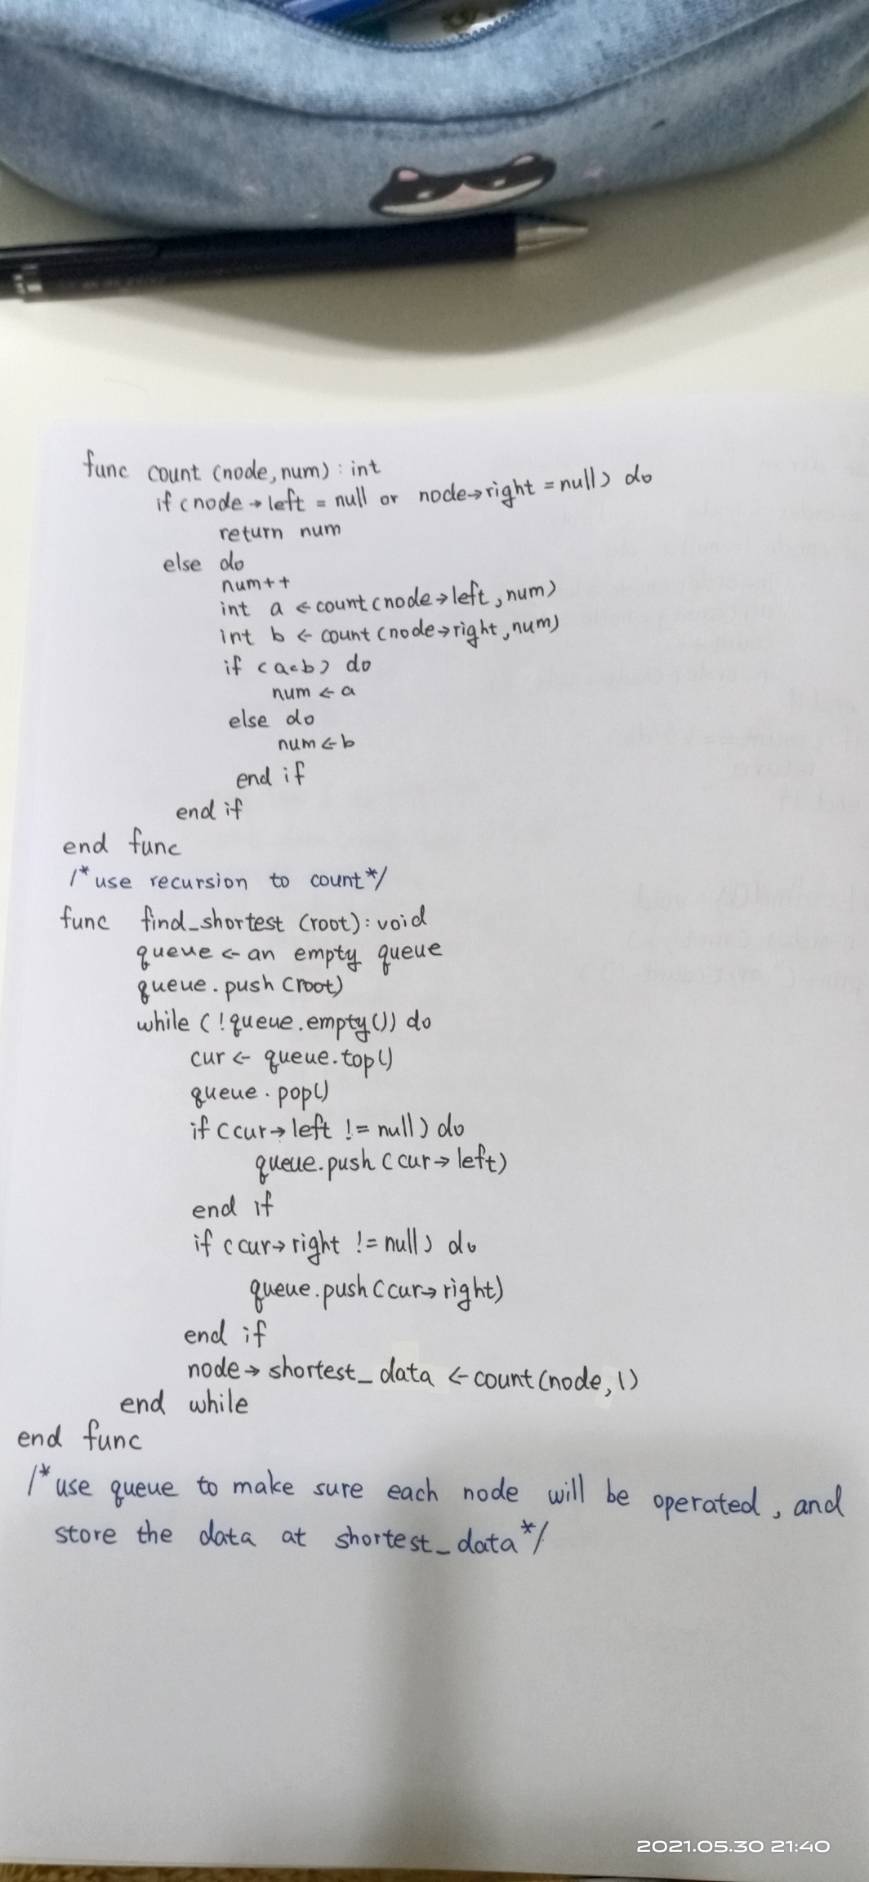 func count (node, num) : int
if (node→left = null or node→right = null) do
return num
else do
num++
int a ← count (node→left, num)
int b ← count (node→right, num)
if (a<b) do
num ← a
else do
num ← b
end if
end if
end func
/*use recursion to count*/
func find_shortest (root) : void
queue ← an empty queue
queue.push (root)
while (!queue.empty()) do
cur ← queue.top()
queue.pop()
if (cur→left != null) do
queue.push (cur→left)
end if
if (cur→right != null) do
queue.push (cur→right)
end if
node→shortest_data ← count (node, 1)
end while
end func
/*use queue to make sure each node will be operated, and
store the data at shortest_data*/
2021.05.30 21:40